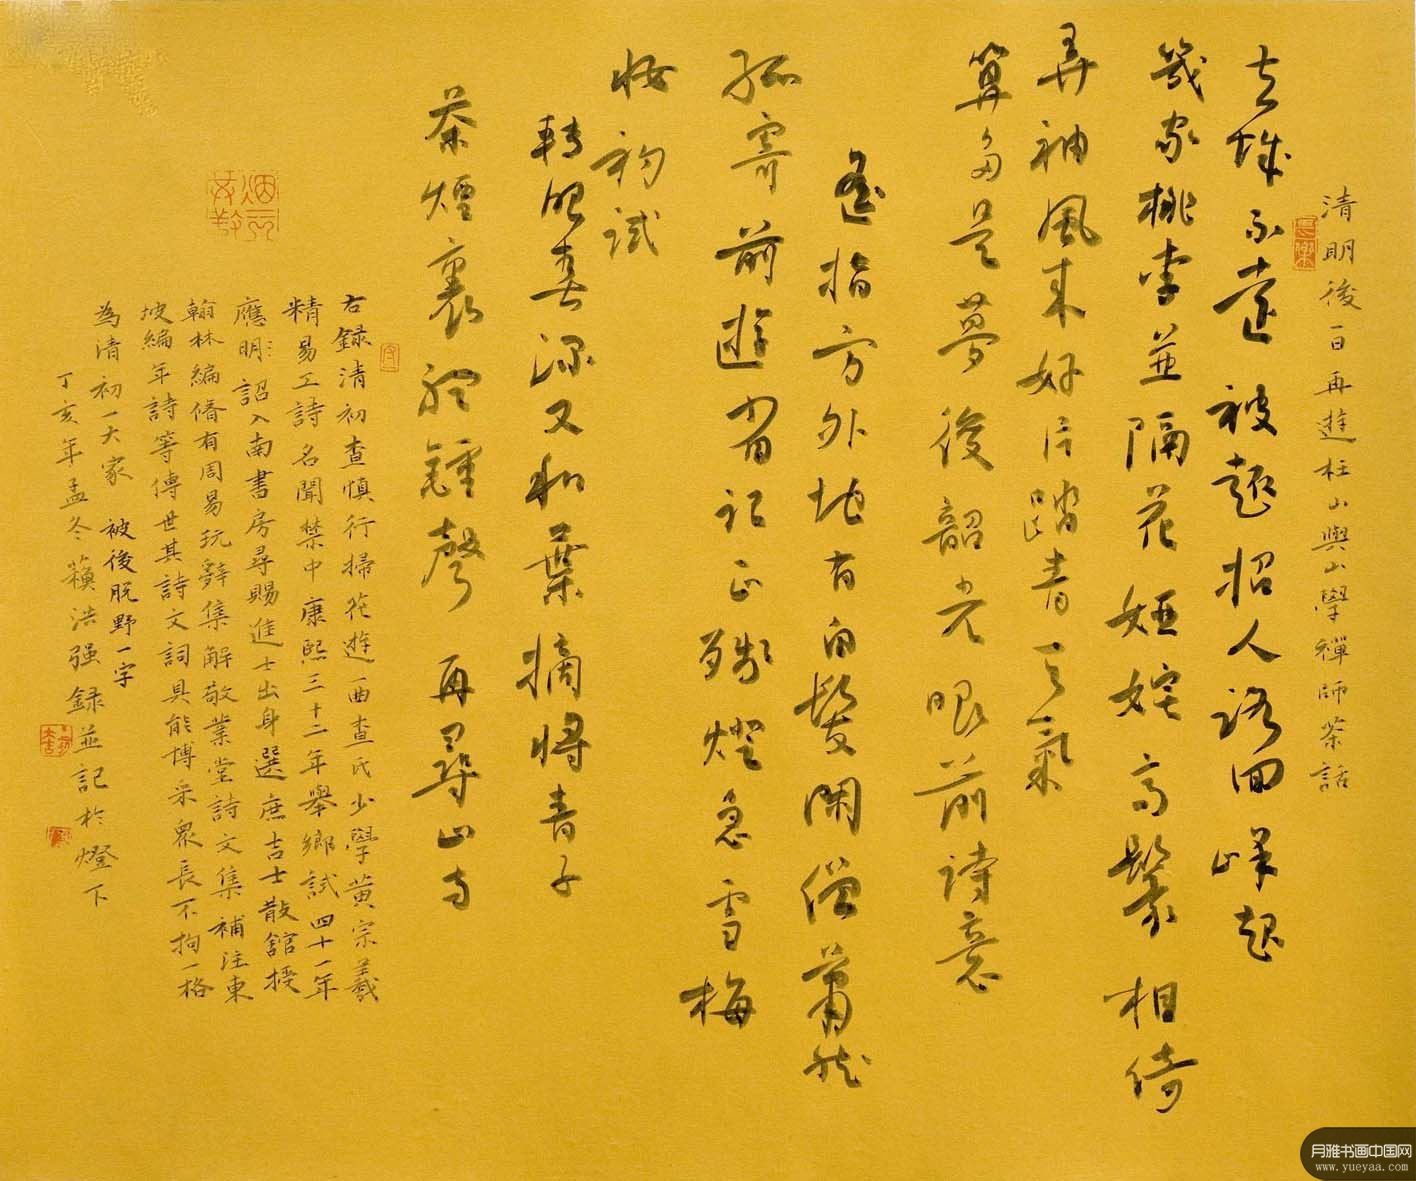 清明後一日再遊柱山與山學禪師茶話
去城不遠被趁招人路回峰起
幾家桃李並隔花婭姹高鬟相倚
弄袖風來好片踏青天氣
算多是夢後韶光眼前詩意
遙指方外地有白髮閑僧蕭然
孤寄前遊省記正殘燈急雪梅
妝初試
轉眼春深又和葉摘將青子
茶煙裏禮鐘聲再尋山寺
右錄清初查慎行掃花遊一曲查氏少學黃宗羲
精易工詩名聞禁中康熙三十二年舉鄉試四十一年
應明詔入南書房尋賜進士出身選庶吉士散館授
翰林編脩有周易玩辭集解敬業堂詩文集補注東
坡編年詩等傳世其詩文詞具能博采眾長不拘一格
為清初一大家 被後脫野一字
丁亥年孟冬蘋洪强録並記於燈下
月雅书画中国网
www.yueyaa.com